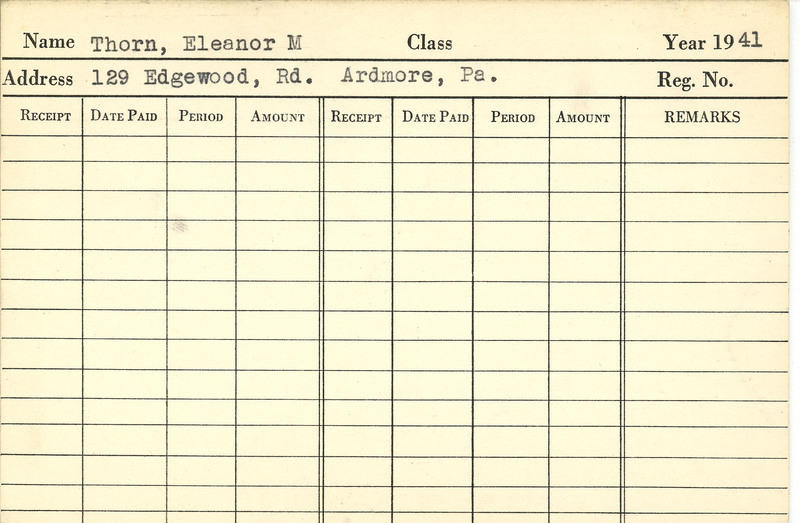 Name Thorn, Eleanor M Class Year 1941
Address 129 Edgewood, Rd. Ardmore, Pa. Reg. No.
RECEIPT DATE PAID PERIOD AMOUNT RECEIPT DATE PAID PERIOD AMOUNT REMARKS